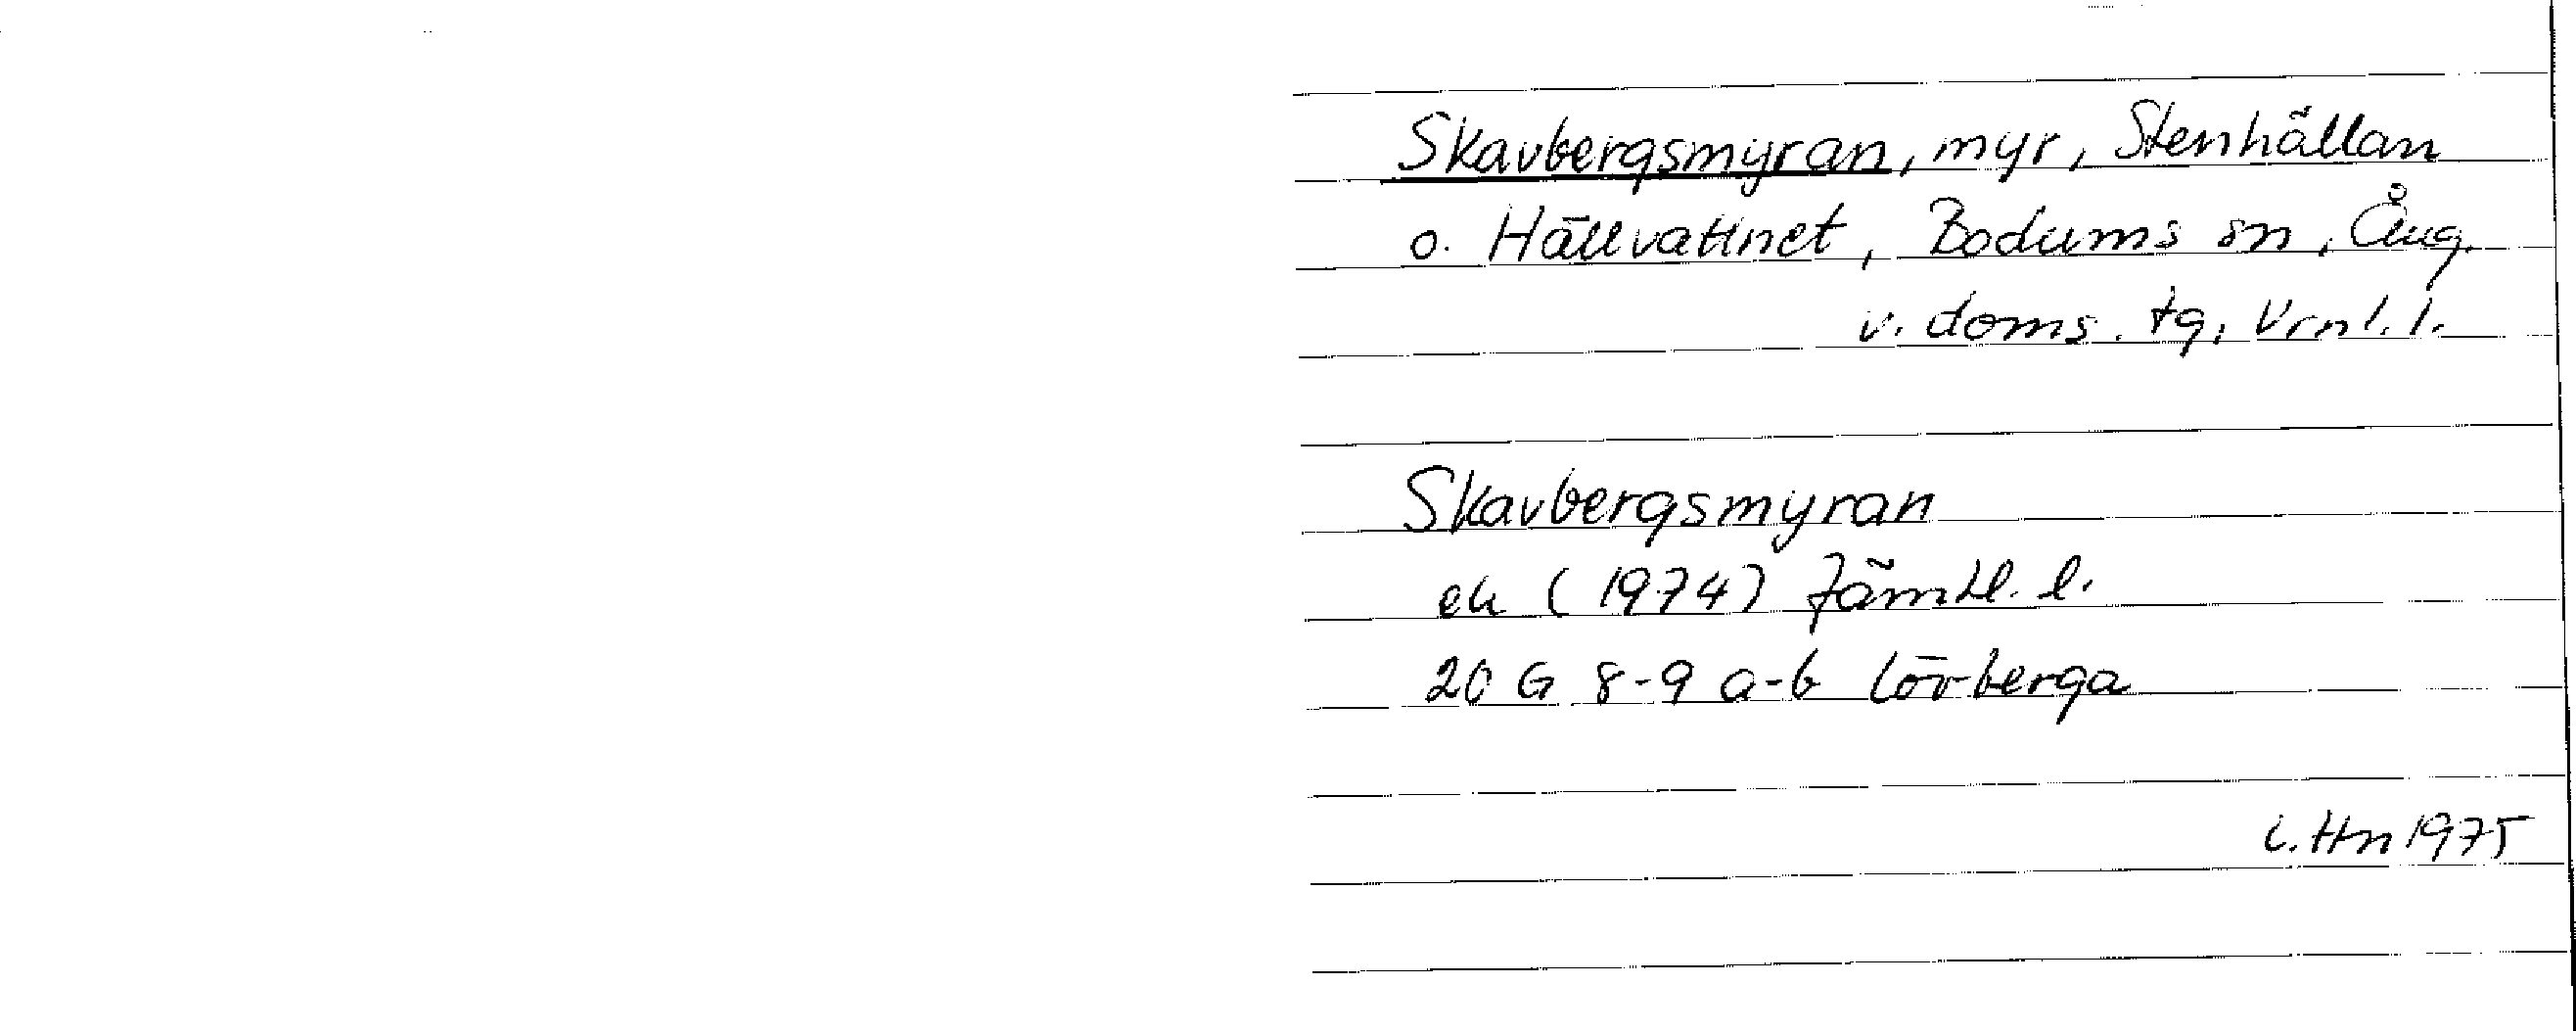 Skavbergsmyran, myr, Stenhällan
o. Hällvattnet, Bodums sn, Ång.
v. doms. tg, Vrnl. l.
Skavbergsmyran
ek (1974) Jämtl. l.
20 G 8-9 a-b Lövberga
i. Hn 1975